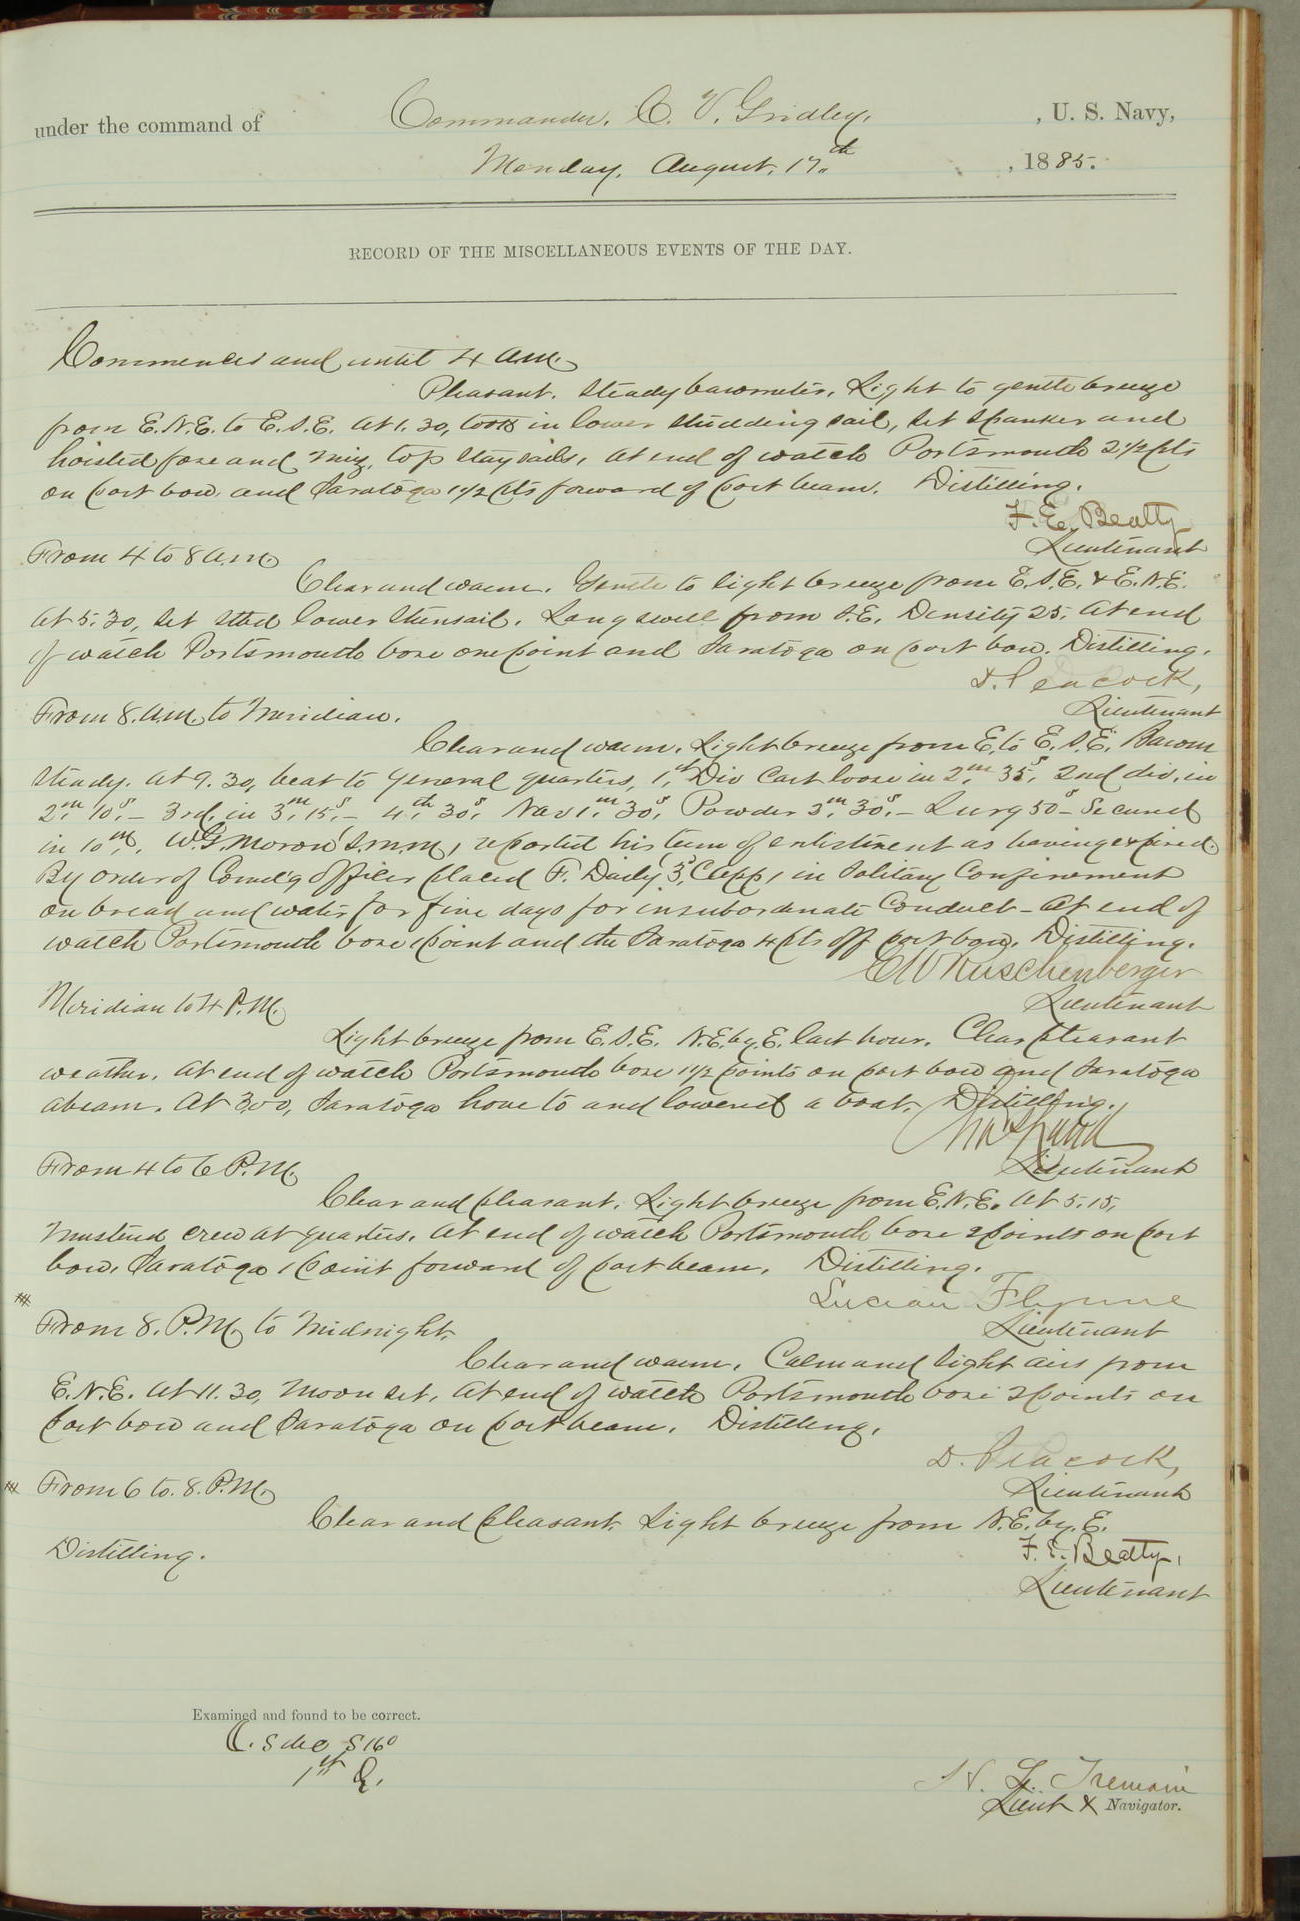 under the command of Commander. C. V. Gridley. , U. S. Navy,
Monday, August, 17.th , 1885.
RECORD OF THE MISCELLANEOUS EVENTS OF THE DAY.
Commences and until 4 a.m.
Pleasant. Steady barometer. Light to gentle breeze
from E.N.E. to E.S.E. At 1.30, took in lower studding sail, set spanker and
hoisted fore and miz. top staysails. At end of watch Portsmouth 2 1/2 pts
on port bow. and Saratoga 1 1/2 pts forward of port beam. Distilling.
F. E. Beatty
Lieutenant
From 4 to 8 a.m.
Clear and warm. Gentle to light breeze from E.S.E. & E.N.E.
At 5.30, set stbd lower stunsail. Long swell from S.E. Density 25. At end
of watch Portsmouth bore one point and Saratoga on port bow. Distilling.
D. Peacock,
Lieutenant
From 8. a.m. to Meridian.
Clear and warm. Light breeze from E. to E.S.E. Barom
steady. At 9.30, beat to general quarters, 1.st Div cast loose in 2.m 35.s 2nd div. in
2.m 10.s – 3rd. in 3.m 15.s – 4.th 30.s Nav 1.m 30.s Powder 3.m 30.s – Surg 50s Secured
in 10m. W.G. Moron S.m.m, reported his term of enlistment as having expired.
By order of Comd'g Officer placed F. Daily in Solitary Confinement
on bread and water for five days for insubordinate Conduct – At end of
watch Portsmouth bore 1 point and the Saratoga 4 pts off port bow. Distilling.
C W Ruschenberger
Lieutenant
Meridian to 4 P.M.
Light breeze from E.S.E. N.E. by. E. last hour. Clear pleasant
weather. At end of watch Portsmouth bore 1 1/2 points on port bow and Saratoga
abeam. At 3.00, Saratoga hove to and lowered a boat. Distilling.
Lieutenant
From 4 to 6 P.M.
Clear and pleasant. Light breeze from E.N.E. At 5.15,
mustered crew at quarters. At end of watch Portsmouth bore 2 points on port
bow. Saratoga 1 point forward of port beam. Distilling.
Lucian Flynne
Lieutenant
From 8. P.M. to Midnight.
Clear and warm. Calm and light airs from
E.N.E. At 11.30, Moon set. At end of watch Portsmouth bore 2 points on
port bow and Saratoga on port beam. Distilling.
D. Peacock,
Lieutenant
From 6 to. 8. P.M.
Clear and pleasant. Light breeze from N.E. by. E.
Distilling.
F. E. Beatty,
Lieutenant
Examined and found to be correct.
H. L. Tremain
Lieut & Navigator.